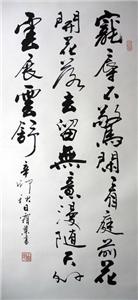 寵辱不驚閒看庭前花
開花落去留無意漫隨天外
雲展雲舒
辛卯秋日